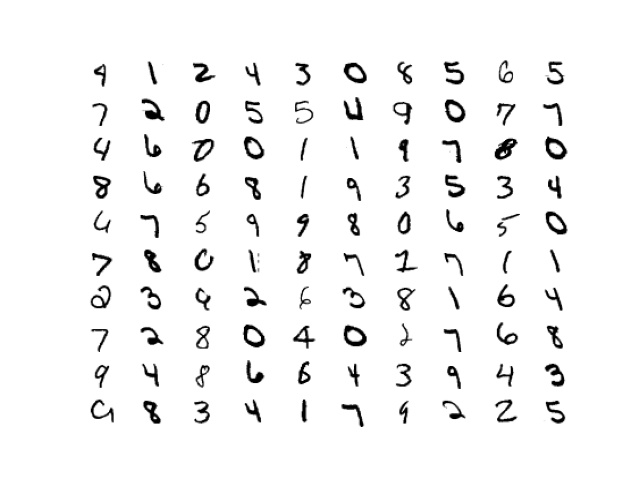 4 1 2 4 3 0 8 5 6 5
7 2 0 5 5 4 9 0 7 7
4 6 0 0 1 1 9 7 8 0
8 6 6 8 1 9 3 5 3 4
4 7 5 9 9 8 0 6 5 0
7 8 0 1 8 7 1 7 1 1
2 3 9 2 6 3 8 1 6 4
7 2 8 0 4 0 2 7 6 8
9 4 8 6 6 4 3 9 4 3
9 8 3 4 1 7 9 2 2 5